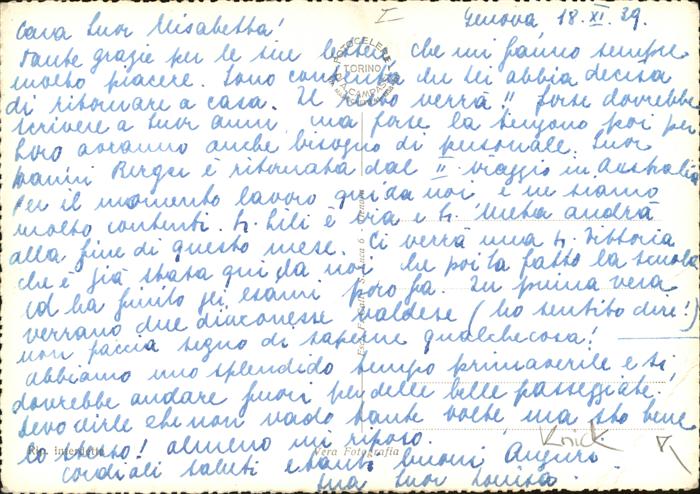 Genova, 18. XI. 59.
Cara Suor Misabetta!
Tante grazie per le sue lettere che mi fanno sempre
molto piacere. Sono contenta che Lei abbia decisa
di ritornare a casa. Il verrà!! forse dovrebbe
scrivere a Suor Anni, ma forse la tengono poi per
Loro avranno anche bisogno di personale. Suor
Nanni Berger è ritornata dal II viaggio in Australia
Per il momento lavoro qui da noi e ne siamo
molto contenti. Lili è via e Meta andrà
alla fine di questo mese. Ci verrà una Vittoria
che è già stata qui da noi che poi ha fatto la scuola
ed ha finito gli esami poco fa. In primavera
verrano due diaconesse valdese (ho sentito dire!)
non faccia segno di saperne qualchecosa!
abbiamo uno splendido tempo primaverile e si
dovrebbe andare fuori per delle belle passegiate.
Devo dirle che non vado tante volte, ma sto bene
lo stesso! almeno mi riposo.
Cordiali saluti e tanti buoni Auguri
Sua Suor Louisa.
I
FOTOCELERE
TORINO
DI CAMPASSI
Rip. interdetta
Vera Fotografia
Knick